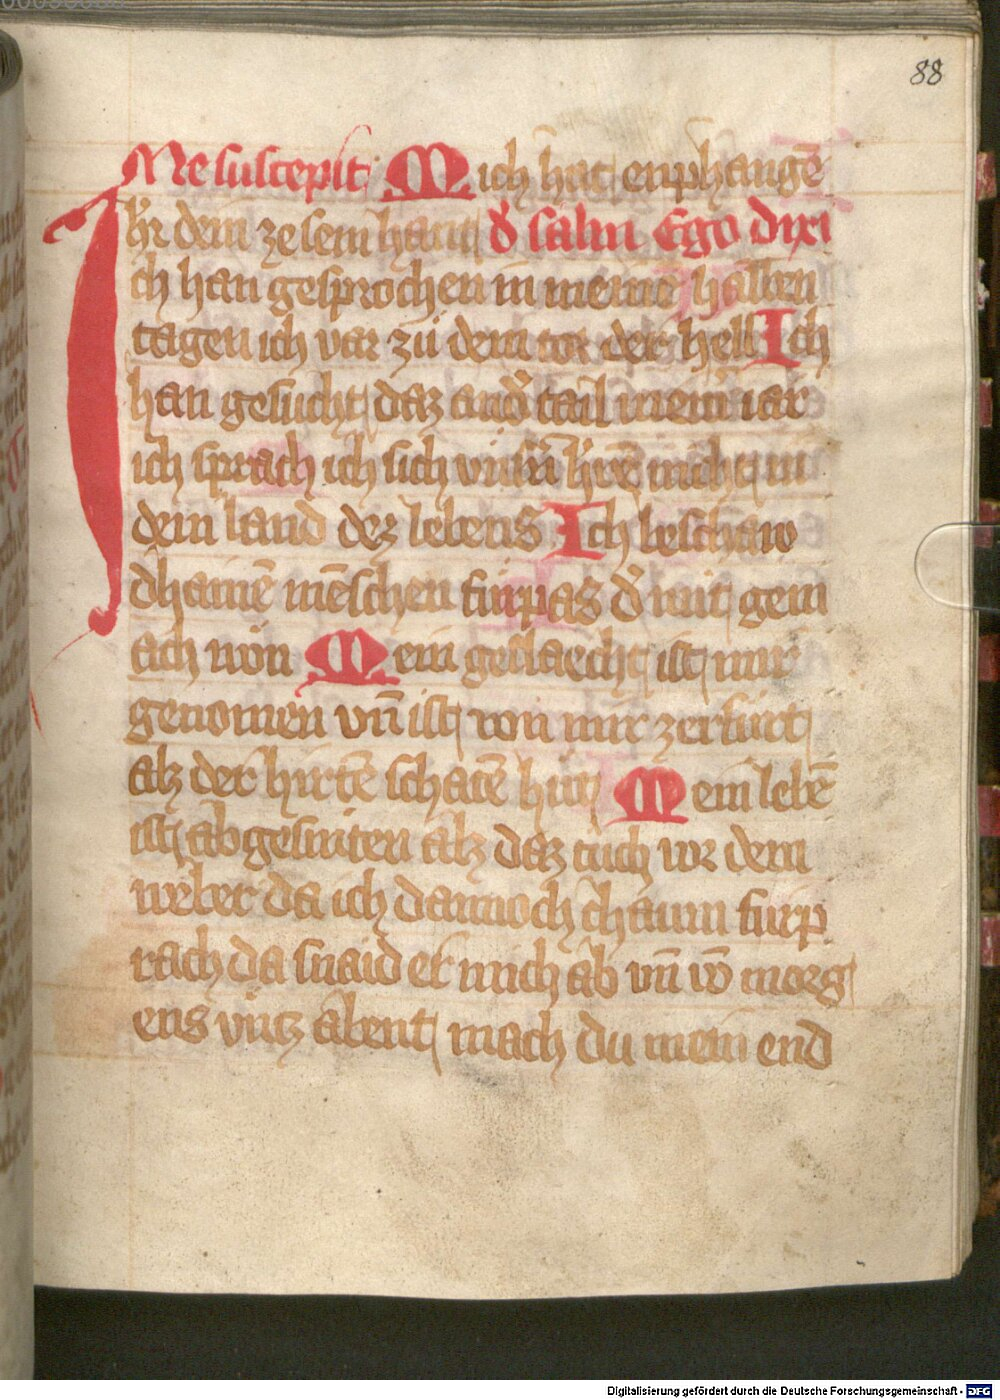 88
Me suscepit Mich hat enphangē
h̄r dein zesem hant d̓ salm Ego dixi
Ich han gesprochen in meinē halben
tagen ich var zü dem tor der hell Ich
han gesucht daz and̓ tail meinr̄ iar
ich sprach ich sich vnsern h̓rē nicht in
dem land dez lebens Ich beschaw
dhainē mēschen fürpas d̓ mit gem
ach won Mein geslaecht ist mir
genomen vn̄ ist von mir zerfürt
alz der hirtē schatē hüt Mein lebē
ist abgesniten alz daz tuch vor dem
weber da ich dannoch chaum fürp
rach da snaid er mich ab vn̄ vō morg
ens vntz abent mach du mein end
Digitalisierung gefördert durch die Deutsche Forschungsgemeinschaft - DFG